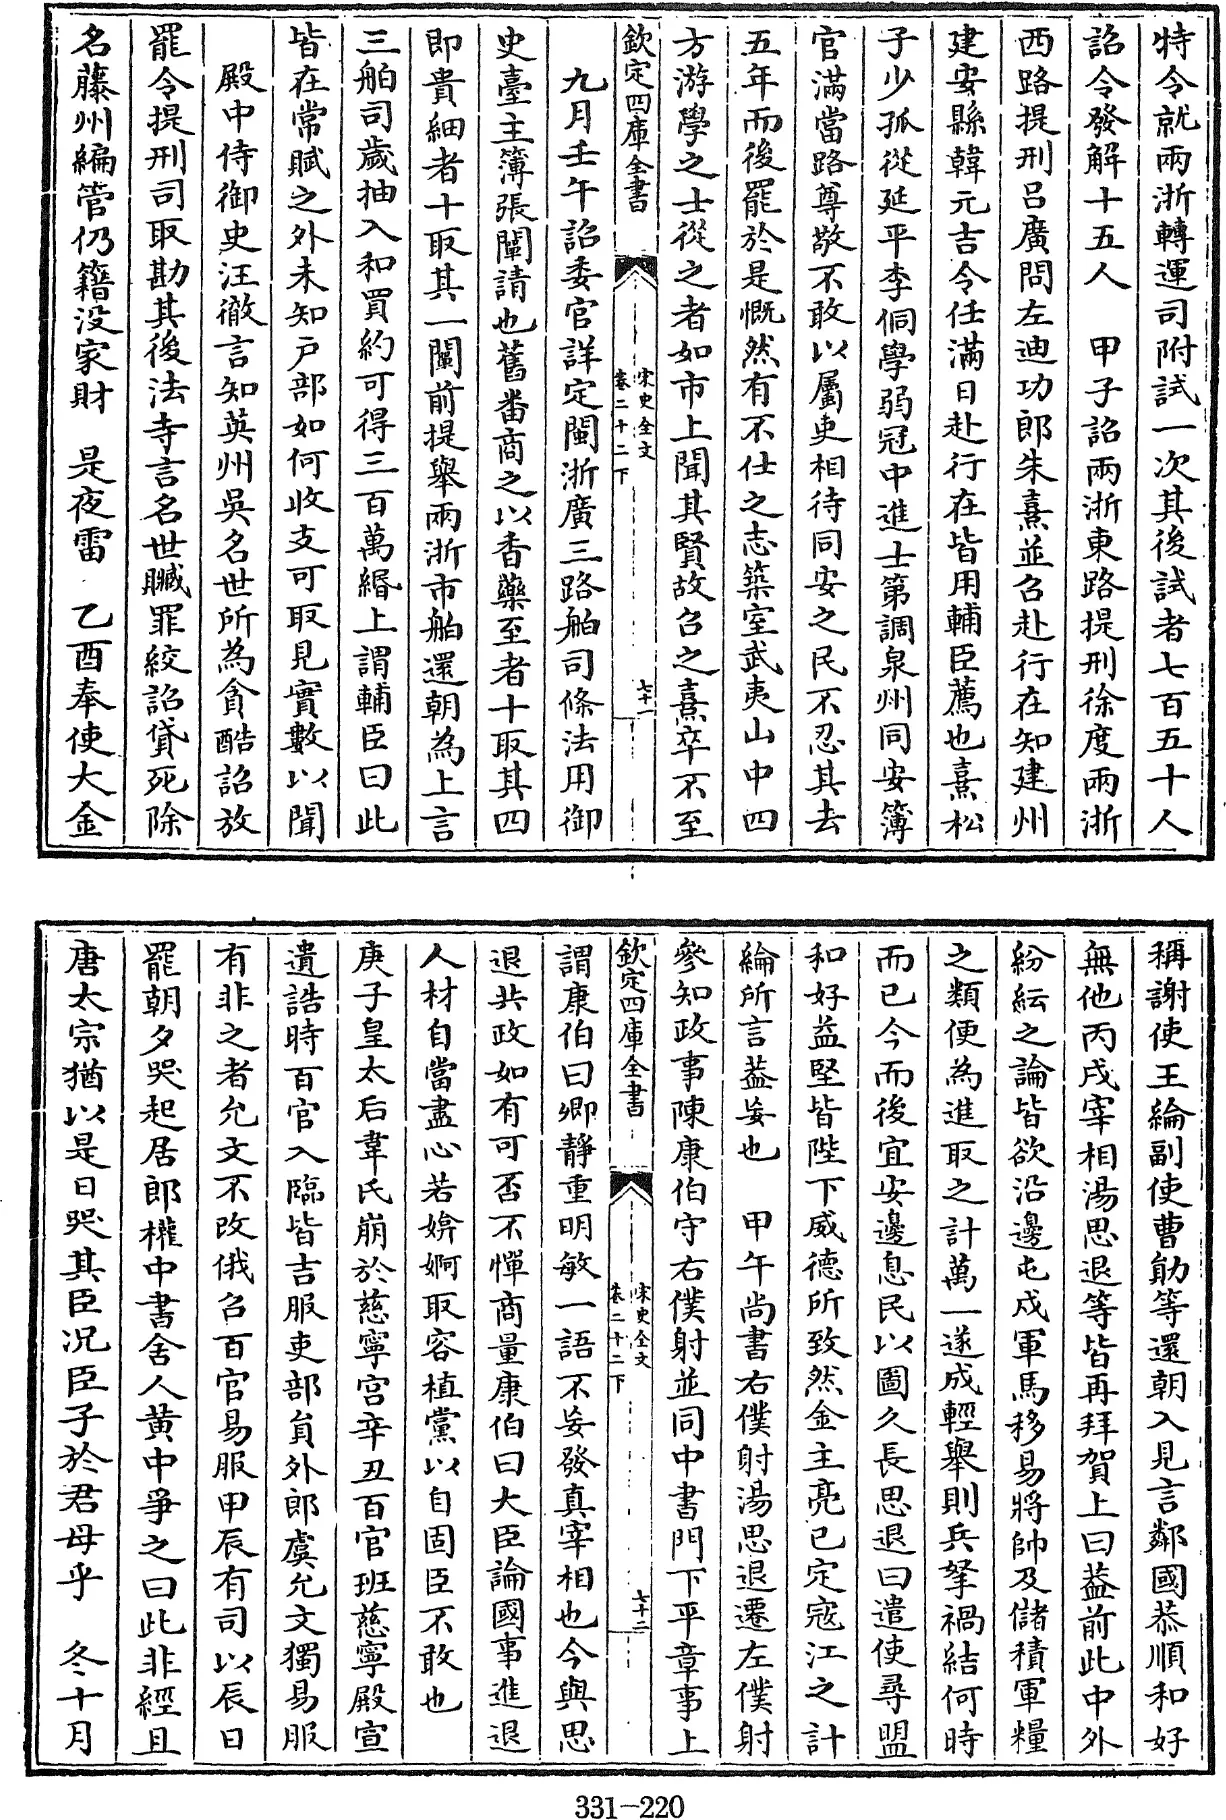 特令就兩浙轉運司附試一次其後試者七百五十人
詔令發解十五人　甲子詔兩浙東路提刑徐度兩浙
西路提刑呂廣問左迪功郎朱熹並召赴行在知建州
建安縣韓元吉令任滿日赴行在皆用輔臣薦也熹松
子少孤從延平李侗學弱冠中進士第調泉州同安簿
官滿當路尊敬不敢以屬吏相待同安之民不忍其去
五年而後罷於是慨然有不仕之志築室武夷山中四
方游學之士從之者如市上聞其賢故召之熹卒不至
欽定四庫全書
宋史全文
卷二十二下
七十一
九月壬午詔委官詳定閩浙廣三路舶司條法用御
史臺主簿張闡請也舊番商之以香藥至者十取其四
即貴細者十取其一闡前提舉兩浙市舶還朝為上言
三舶司歲抽入和買約可得三百萬緡上謂輔臣曰此
皆在常賦之外未知戶部如何收支可取見實數以聞
殿中侍御史汪徹言知英州吳名世所為貪酷詔放
罷令提刑司取勘其後法寺言名世贓罪絞詔貸死除
名藤州編管仍籍没家財　是夜雷　乙酉奉使大金
稱謝使王綸副使曹勛等還朝入見言鄰國恭順和好
無他丙戌宰相湯思退等皆再拜賀上曰葢前此中外
紛紜之論皆欲沿邊屯戍軍馬移易將帥及儲積軍糧
之類便為進取之計萬一遂成輕舉則兵拏禍結何時
而已今而後宜安邊息民以圖久長思退曰遣使尋盟
和好益堅皆陛下威德所致然金主亮已定寇江之計
綸所言葢妄也　甲午尚書右僕射湯思退遷左僕射
參知政事陳康伯守右僕射並同中書門下平章事上
欽定四庫全書
宋史全文
卷二十二下
七十二
謂康伯曰卿靜重明敏一語不妄發真宰相也今與思
退共政如有可否不憚商量康伯曰大臣論國事進退
人材自當盡心若媕婀取容植黨以自固臣不敢也
庚子皇太后韋氏崩於慈寧宮辛丑百官班慈寧殿宣
遺誥時百官入臨皆吉服吏部員外郎虞允文獨易服
有非之者允文不改俄召百官易服甲辰有司以辰日
罷朝夕哭起居郎權中書舍人黃中爭之曰此非經且
唐太宗猶以是日哭其臣况臣子於君母乎　冬十月
331-220